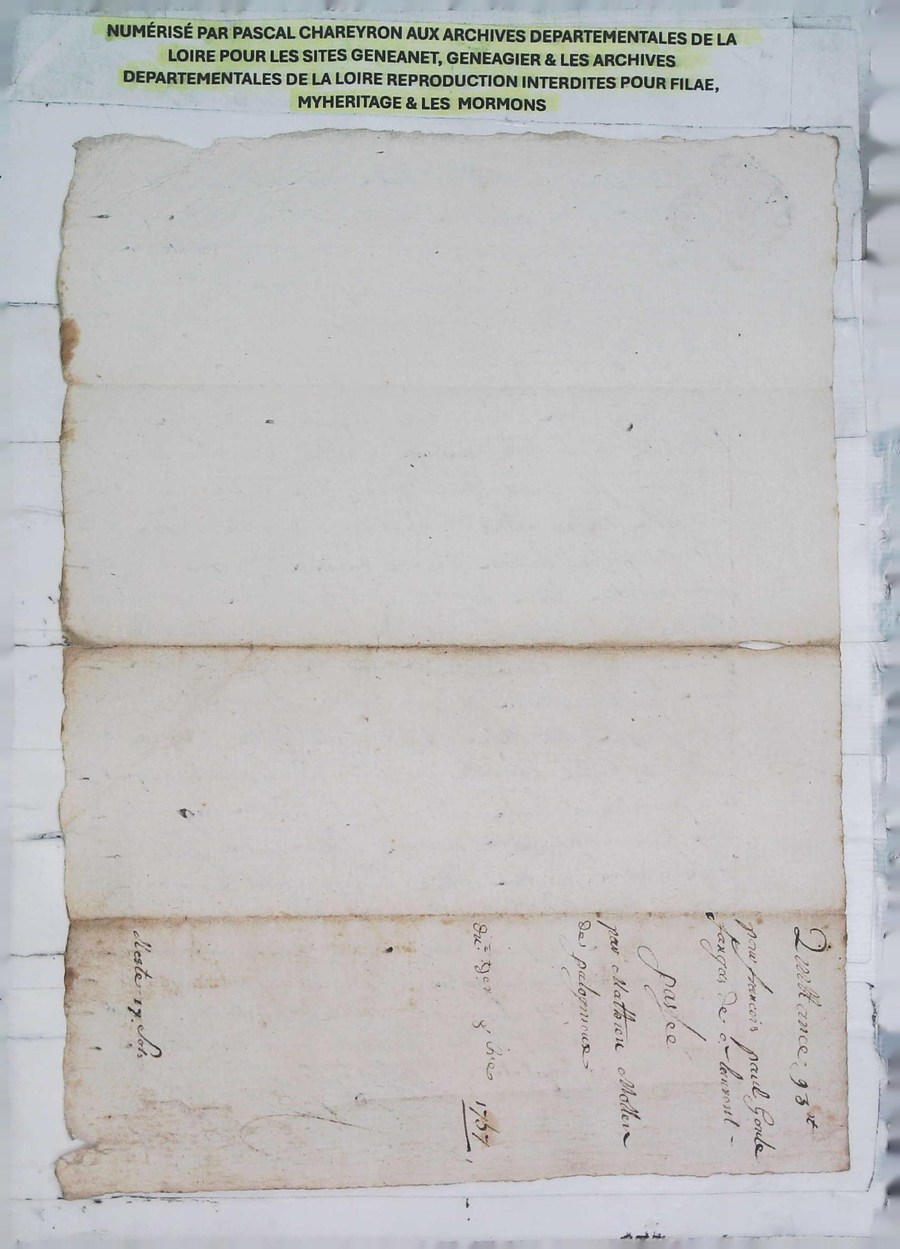 NUMÉRISÉ PAR PASCAL CHAREYRON AUX ARCHIVES DEPARTEMENTALES DE LA
LOIRE POUR LES SITES GENEANET, GENEAGIER & LES ARCHIVES
DEPARTEMENTALES DE LA LOIRE REPRODUCTION INTERDITES POUR FILAE,
MYHERITAGE & LES MORMONS
Quittance, 93
pour francois paul
de
passée
par Mathieu
de palogneux
du 8 1757
Reste 17 sols